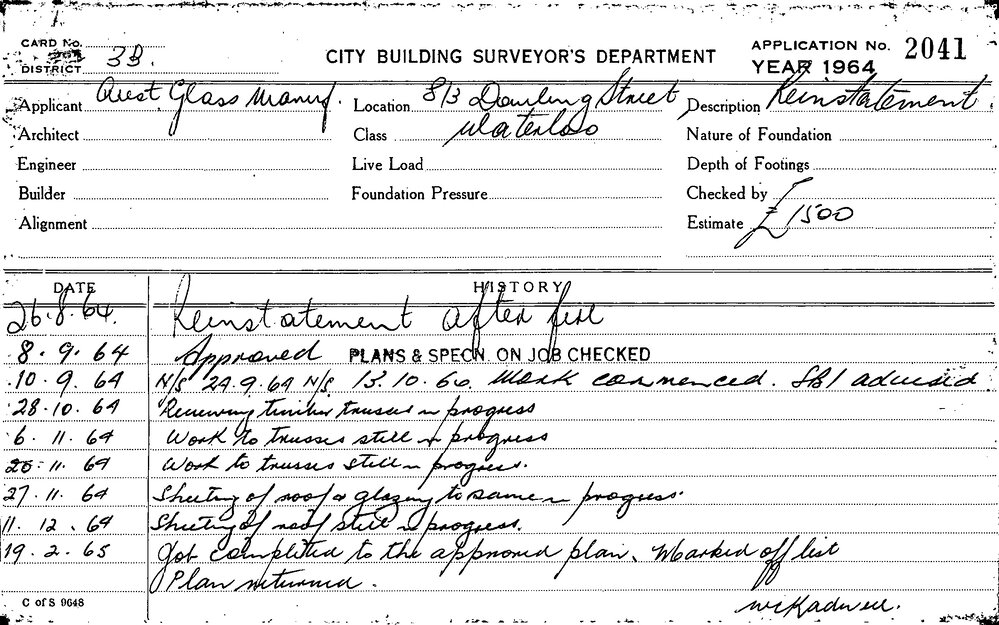 CARD No.
DISTRICT 3B.
CITY BUILDING SURVEYOR'S DEPARTMENT
APPLICATION No. 2041
YEAR 1964
Applicant Aust. Glass Manuf. Location 813 Dowling Street Description Reinstatement
Architect Class Waterloo Nature of Foundation
Engineer Live Load Depth of Footings
Builder Foundation Pressure Checked by
Alignment Estimate £1500
DATE HISTORY
26.8.64. Reinstatement after fire
8.9.64 Approved PLANS & SPECN. ON JOB CHECKED
10.9.64 N/S 24.9.64 N/S 13.10.64. Work commenced. SBI advised
28.10.64 Renewing timber trusses in progress
6.11.64 Work to trusses still in progress
20.11.64 Work to trusses still in progress.
27.11.64 Sheeting of roof & glazing to same in progress.
11.12.64 Sheeting of roof still in progress.
19.2.65 Job completed to the approved plan. Marked off list
Plan returned.
C of S 9648